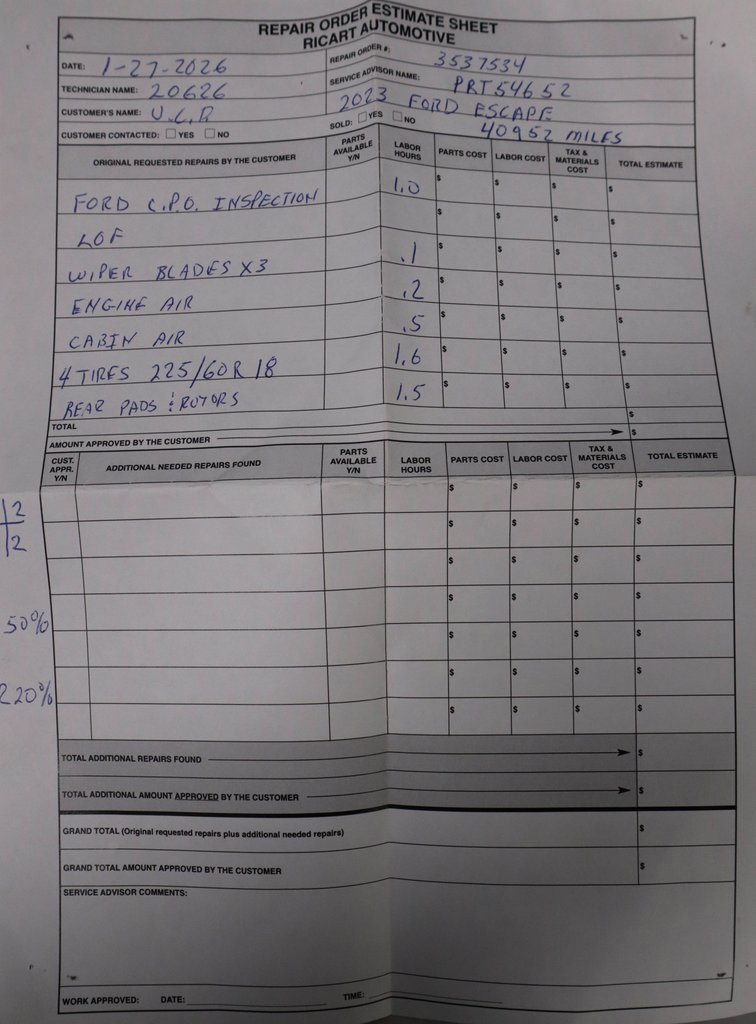 REPAIR ORDER ESTIMATE SHEET
RICART AUTOMOTIVE
DATE: 1-27-2026
REPAIR ORDER #: 3537534
TECHNICIAN NAME: 20626
SERVICE ADVISOR NAME: PRT54652
CUSTOMER'S NAME: U.C.R
2023 FORD ESCAPE
CUSTOMER CONTACTED: YES NO
SOLD: YES NO
40952 MILES
ORIGINAL REQUESTED REPAIRS BY THE CUSTOMER PARTS AVAILABLE Y/N LABOR HOURS PARTS COST LABOR COST TAX & MATERIALS COST TOTAL ESTIMATE
FORD C.P.O. INSPECTION 1.0 $ $ $ $
LOF $ $ $ $
WIPER BLADES X3 .1 $ $ $ $
ENGINE AIR .2 $ $ $ $
CABIN AIR .5 $ $ $ $
4 TIRES 225/60R18 1.6 $ $ $ $
REAR PADS & ROTORS 1.5 $ $ $ $
TOTAL $
AMOUNT APPROVED BY THE CUSTOMER $
CUST. APPR. Y/N ADDITIONAL NEEDED REPAIRS FOUND PARTS AVAILABLE Y/N LABOR HOURS PARTS COST LABOR COST TAX & MATERIALS COST TOTAL ESTIMATE
$ $ $ $
12
12
$ $ $ $
$ $ $ $
$ $ $ $
50%
$ $ $ $
$ $ $ $
20%
$ $ $ $
TOTAL ADDITIONAL REPAIRS FOUND $
TOTAL ADDITIONAL AMOUNT APPROVED BY THE CUSTOMER $
GRAND TOTAL (Original requested repairs plus additional needed repairs) $
GRAND TOTAL AMOUNT APPROVED BY THE CUSTOMER $
SERVICE ADVISOR COMMENTS:
WORK APPROVED: DATE: TIME: